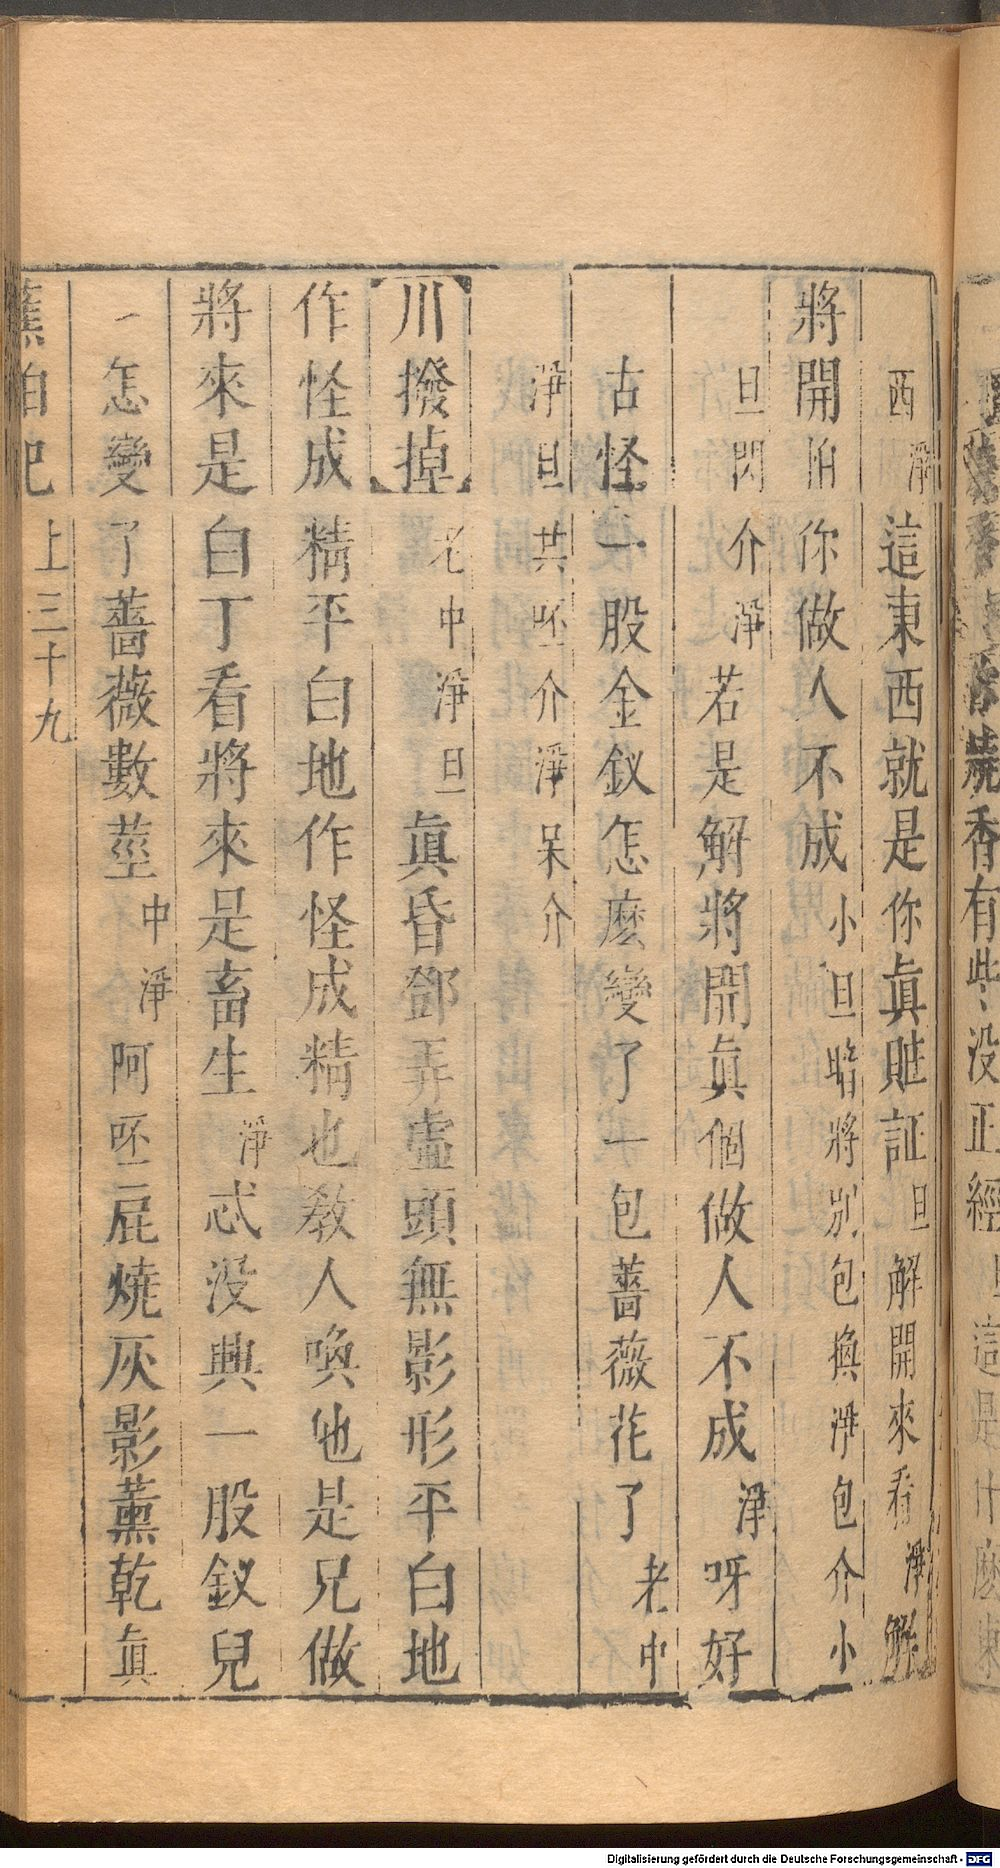 燒香有些没正經
這是什麽東
西淨這東西就是你眞賍証旦解開來看淨解
將開怕你做人不成小旦暗將别包換淨包介小
旦閃介淨若是解將開眞個做人不成淨呀好
古怪一股金釵怎麽變了一包薔薇花了老中
淨旦共呸介淨呆介
川撥掉老中淨旦眞昏鄧弄虛頭無影形平白地
作怪成精平白地作怪成精也教人喚他是兄做
將來是白丁看將來是畜生淨忒没興一股釵兒
怎變了薔薇數莖中淨阿呸屁燒灰影薰乾眞
蕉帕記
上三十九
Digitalisierung gefördert durch die Deutsche Forschungsgemeinschaft - DFG